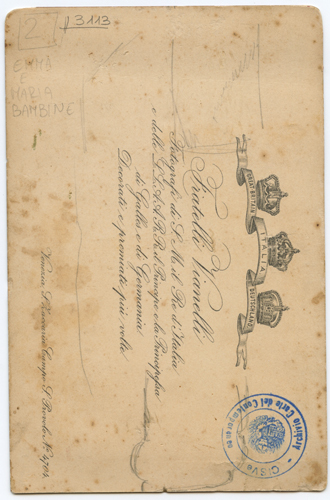 2
3113
EMMA
E
MARIA
BAMBINE
INGHILTERRA
ITALIA
GERMANIA
Fratelli Vianelli
Fotografi di S. M. il Re d'Italia
e delle LL. AA. RR. il Principe e la Principessa
di Galles e di Germania
Decorati e premiati più volte
Venezia S. Provolo Campo S. Provolo N. 4704
Archivio Carte del Contemporaneo
CISVe